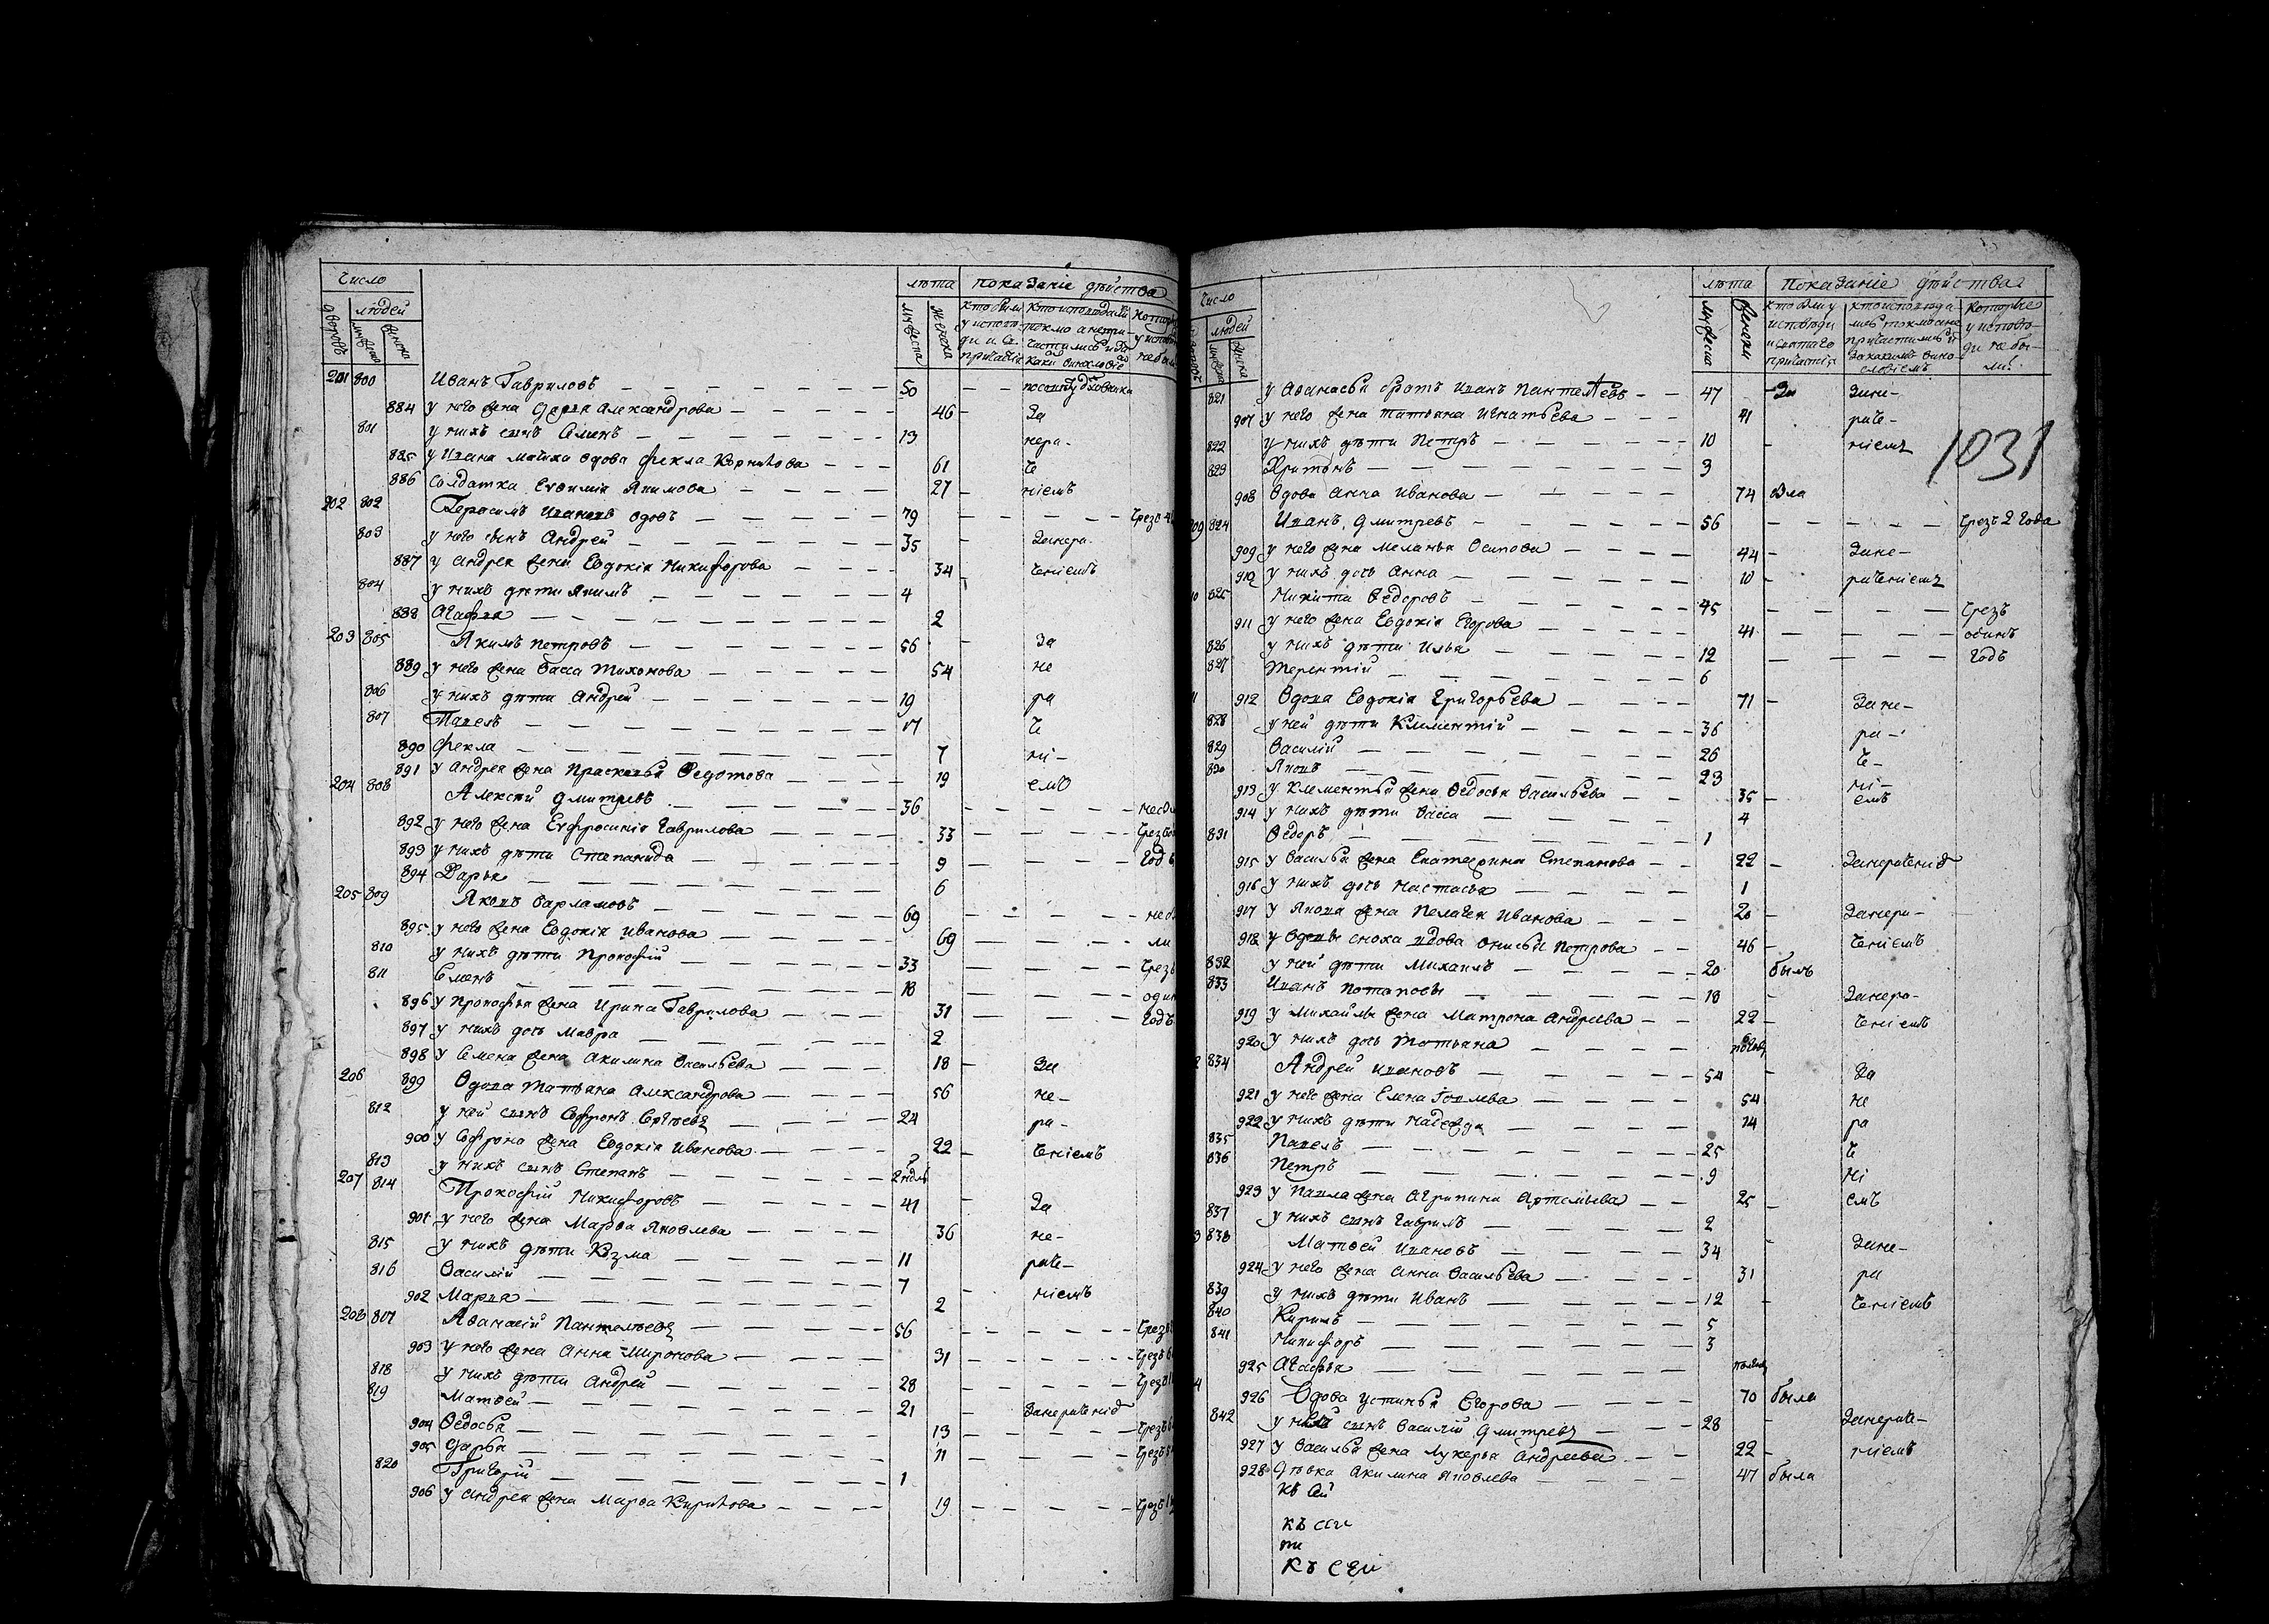 Число
людей
лѣта показаніе дѣйства
дворовъ мужеска женска
мужеска женска
201 800 Иванъ Гавриловъ 50
884 у него жена Дарья Александрова 46 За
801 у нихъ сынъ Семенъ 13 нера-
885 у Ивана мачиха вдова Фекла Корнилова 61 че
886 солдатка Евфимія Якимова 27 ніемъ
202 802 Герасимъ Ивановъ вдовъ 79 чрезъ
803 у него сынъ Андрей 35 Занера-
887 у Андрея жена Евдокія Никифорова 34 ченіемъ
804 у нихъ дѣти Якимъ 4
888 Агафья 2
203 805 Якимъ Петровъ 56 За
889 у него жена Васса Тихонова 54 не
806 у нихъ дѣти Андрей 19 ра
807 Павелъ 17 че
890 Фекла 7 ні-
891 у Андрея жена Прасковья Федотова 19 емъ
204 808 Алексѣй Дмитревъ 36
892 у него жена Евфросинія Гаврилова 33
893 у нихъ дѣти Степанида 9 годъ
894 Дарья 6
205 809 Яковъ Варламовъ 69
895 у него жена Евдокія Иванова 69 ли
810 у нихъ дѣти Прокофій 33 чрезъ
811 Семенъ 18 один
896 у Прокофья жена Ирина Гаврилова 31 годъ
897 у нихъ дочь Мавра 2
898 у Семена жена Акилина Васильева 18 За
206 899 Вдова Татьяна Александрова 56 не-
812 у ней сынъ Софронъ Сергѣевъ 24 ра-
900 у Софрона жена Евдокія Иванова 22 ченіемъ
813 у нихъ сынъ Степанъ 2 ндлѣ
207 814 Прокофій Никифоровъ 41 За
901 у него жена Марфа Яковлева 36 не-
815 у нихъ дѣти Козма 11 раче-
816 Василій 7 ніемъ
902 Марфа 2
208 817 Афанасій Пантелѣевъ 56 чрезъ
903 у него жена Анна Миронова 31 чрезъ
818 у нихъ дѣти Андрей 28 чрезъ
819 Матвей 21 Занераченіе
904 Федосья 13 чрезъ
905 Дарья 11 чрезъ
820 Григорій 1
906 у Андрея жена Марфа Кирилова 19 чрезъ
Число
людей
лѣта показаніе дѣйства
мужеска женски
кто былъ у исповѣди и святаго причастія
которые у испове-ди не бы-ли
1031
821 у Афанасья братъ Иванъ Пантелѣевъ 47 Зане-
907 у него жена Татьяна Игнатьева 41 раче-
822 у нихъ дѣти Петръ 10 ніемъ
823 Харитонъ 3
908 вдова Анна Иванова 74 была
209 824 Иванъ Дмитревъ 56 чрезъ 2 года
909 у него жена Меланья Осипова 44 Зане-
910 у нихъ дочь Анна 10 раченіемъ
825 Никита Федоровъ 45 чрезъ
911 у него жена Евдокія Егорова 41 одинъ
826 у нихъ дѣти Илья 12 годъ
827 Терентій 6
912 Вдова Евдокія Григорьева 71 Зане-
828 у ней дѣти Климентій 36 ра-
829 Василій 26 че-
830 Яковъ 23 ні-
913 у Клементья жена Федосья Васильева 35 емъ
914 у нихъ дѣти Васса 4
831 Федоръ 1
915 у Василья жена Екатерина Степанова 22 Занераченіе
916 у нихъ дочь Настасья 1
917 у Якова жена Пелагея Иванова 20 Занера-
918 у вдовы сноха вдова Онисья Петрова 46 ченіемъ
832 у ней дѣти Михаилъ 20 былъ
833 Иванъ Потаповы 18 Занера-
919 у Михаилы жена Матрона Андреева 22 ченіемъ
920 у нихъ дочь Татьяна
834 Андрей Ивановъ 54 За
921 у него жена Елена Іовлева 54 не
922 у нихъ дѣти Надежда 14 ра
835 Павелъ 25 че
836 Петръ 9 ні
923 у Павла жена Агрипина Артемьева 25 емъ
837 у нихъ сынъ Гаврилъ 2
838 Матвей Ивановъ 34 Зане-
924 у него жена Анна Васильева 31 ра
839 у нихъ дѣти Иванъ 12 ченіемъ
840 Кирилъ 5
841 Никифоръ 3
925 Агафья
926 Вдова Устинья Егорова 70 была
842 у ней сынъ Василій Дмитревъ 28 Занераче-
927 у Василья жена Лукерья Андреева 22 ніемъ
928 Дѣвка Акилина Яковлева 47 была
къ сей
къ сей
къ сей